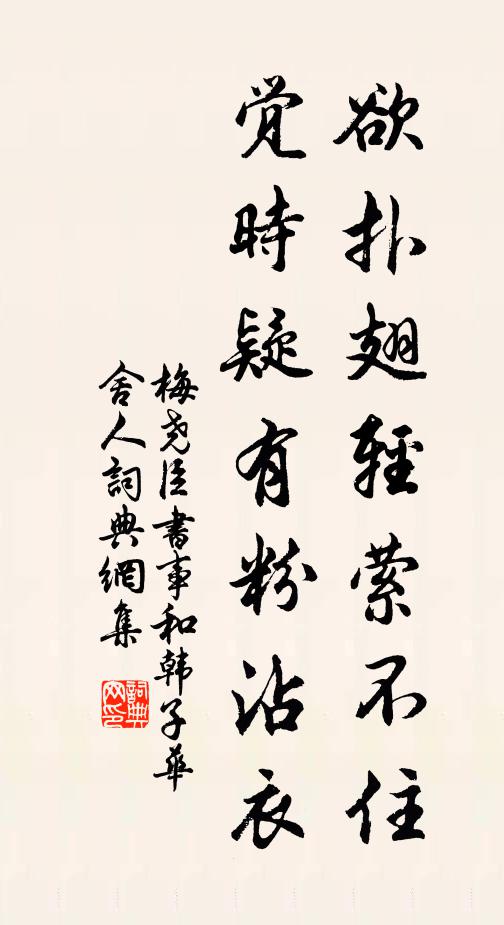 欲扑翅輕萦不住
觉時疑有粉沾衣
梅尧臣書事和韩子華
舍人詞典網集
詞典网印